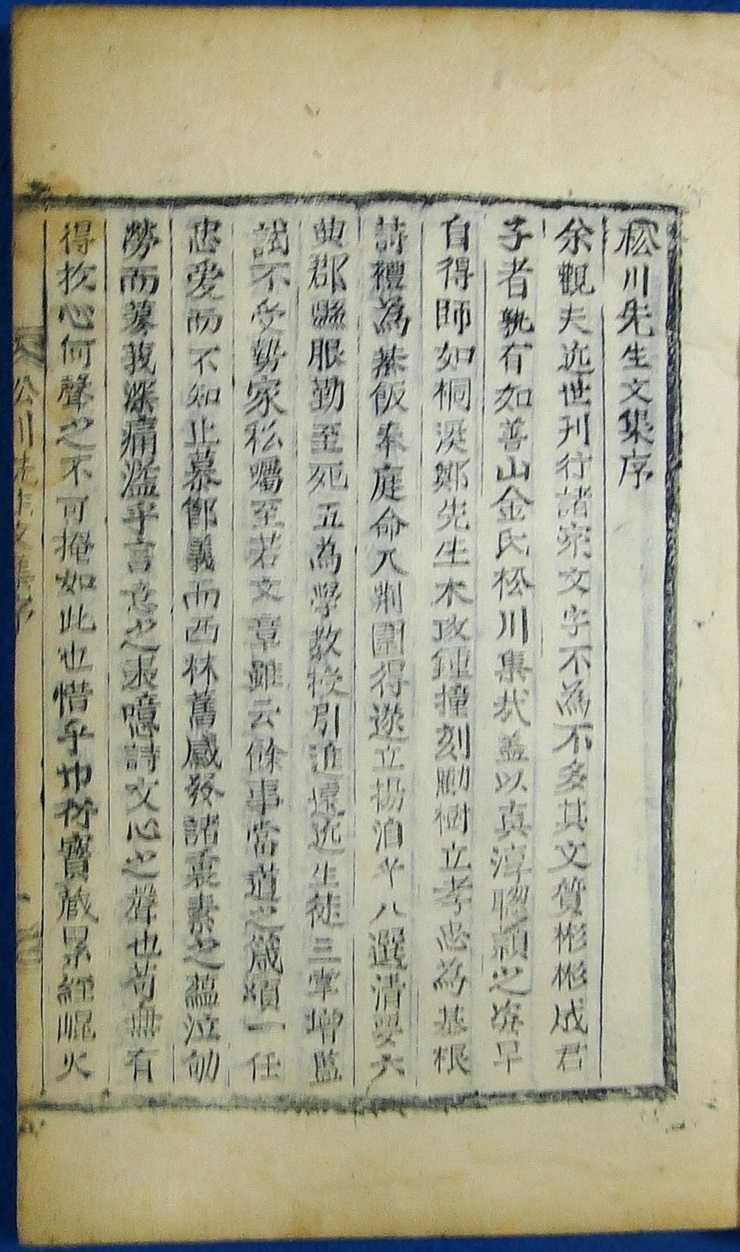 松川先生文集序
余觀夫近世刊行諸家文字不為不多其文質彬彬成君
子者孰有如善山金氏松川集哉盖以真淳聰穎之姿早
自得師如桐溪鄭先生木攻鍾撞刻勵樹立孝忠為基根
詩禮為茶飯奉庭命入荆圍得遂立揚泊乎八選清要六
典郡縣服勤至死五為學教授引進遠近生徒三掌增監
試不受勢家私囑至若文章雖云餘事當道之箴頌一任
忠愛而不知止慕節義而西林舊感發諸裏素之蘊泣劬
勞而蓼莪深痛溢乎言意之表噫詩文心之聲也苟無有
得於心何聲之不可掩如此也惜乎巾衍寶藏累經崐火
松川先生文集序